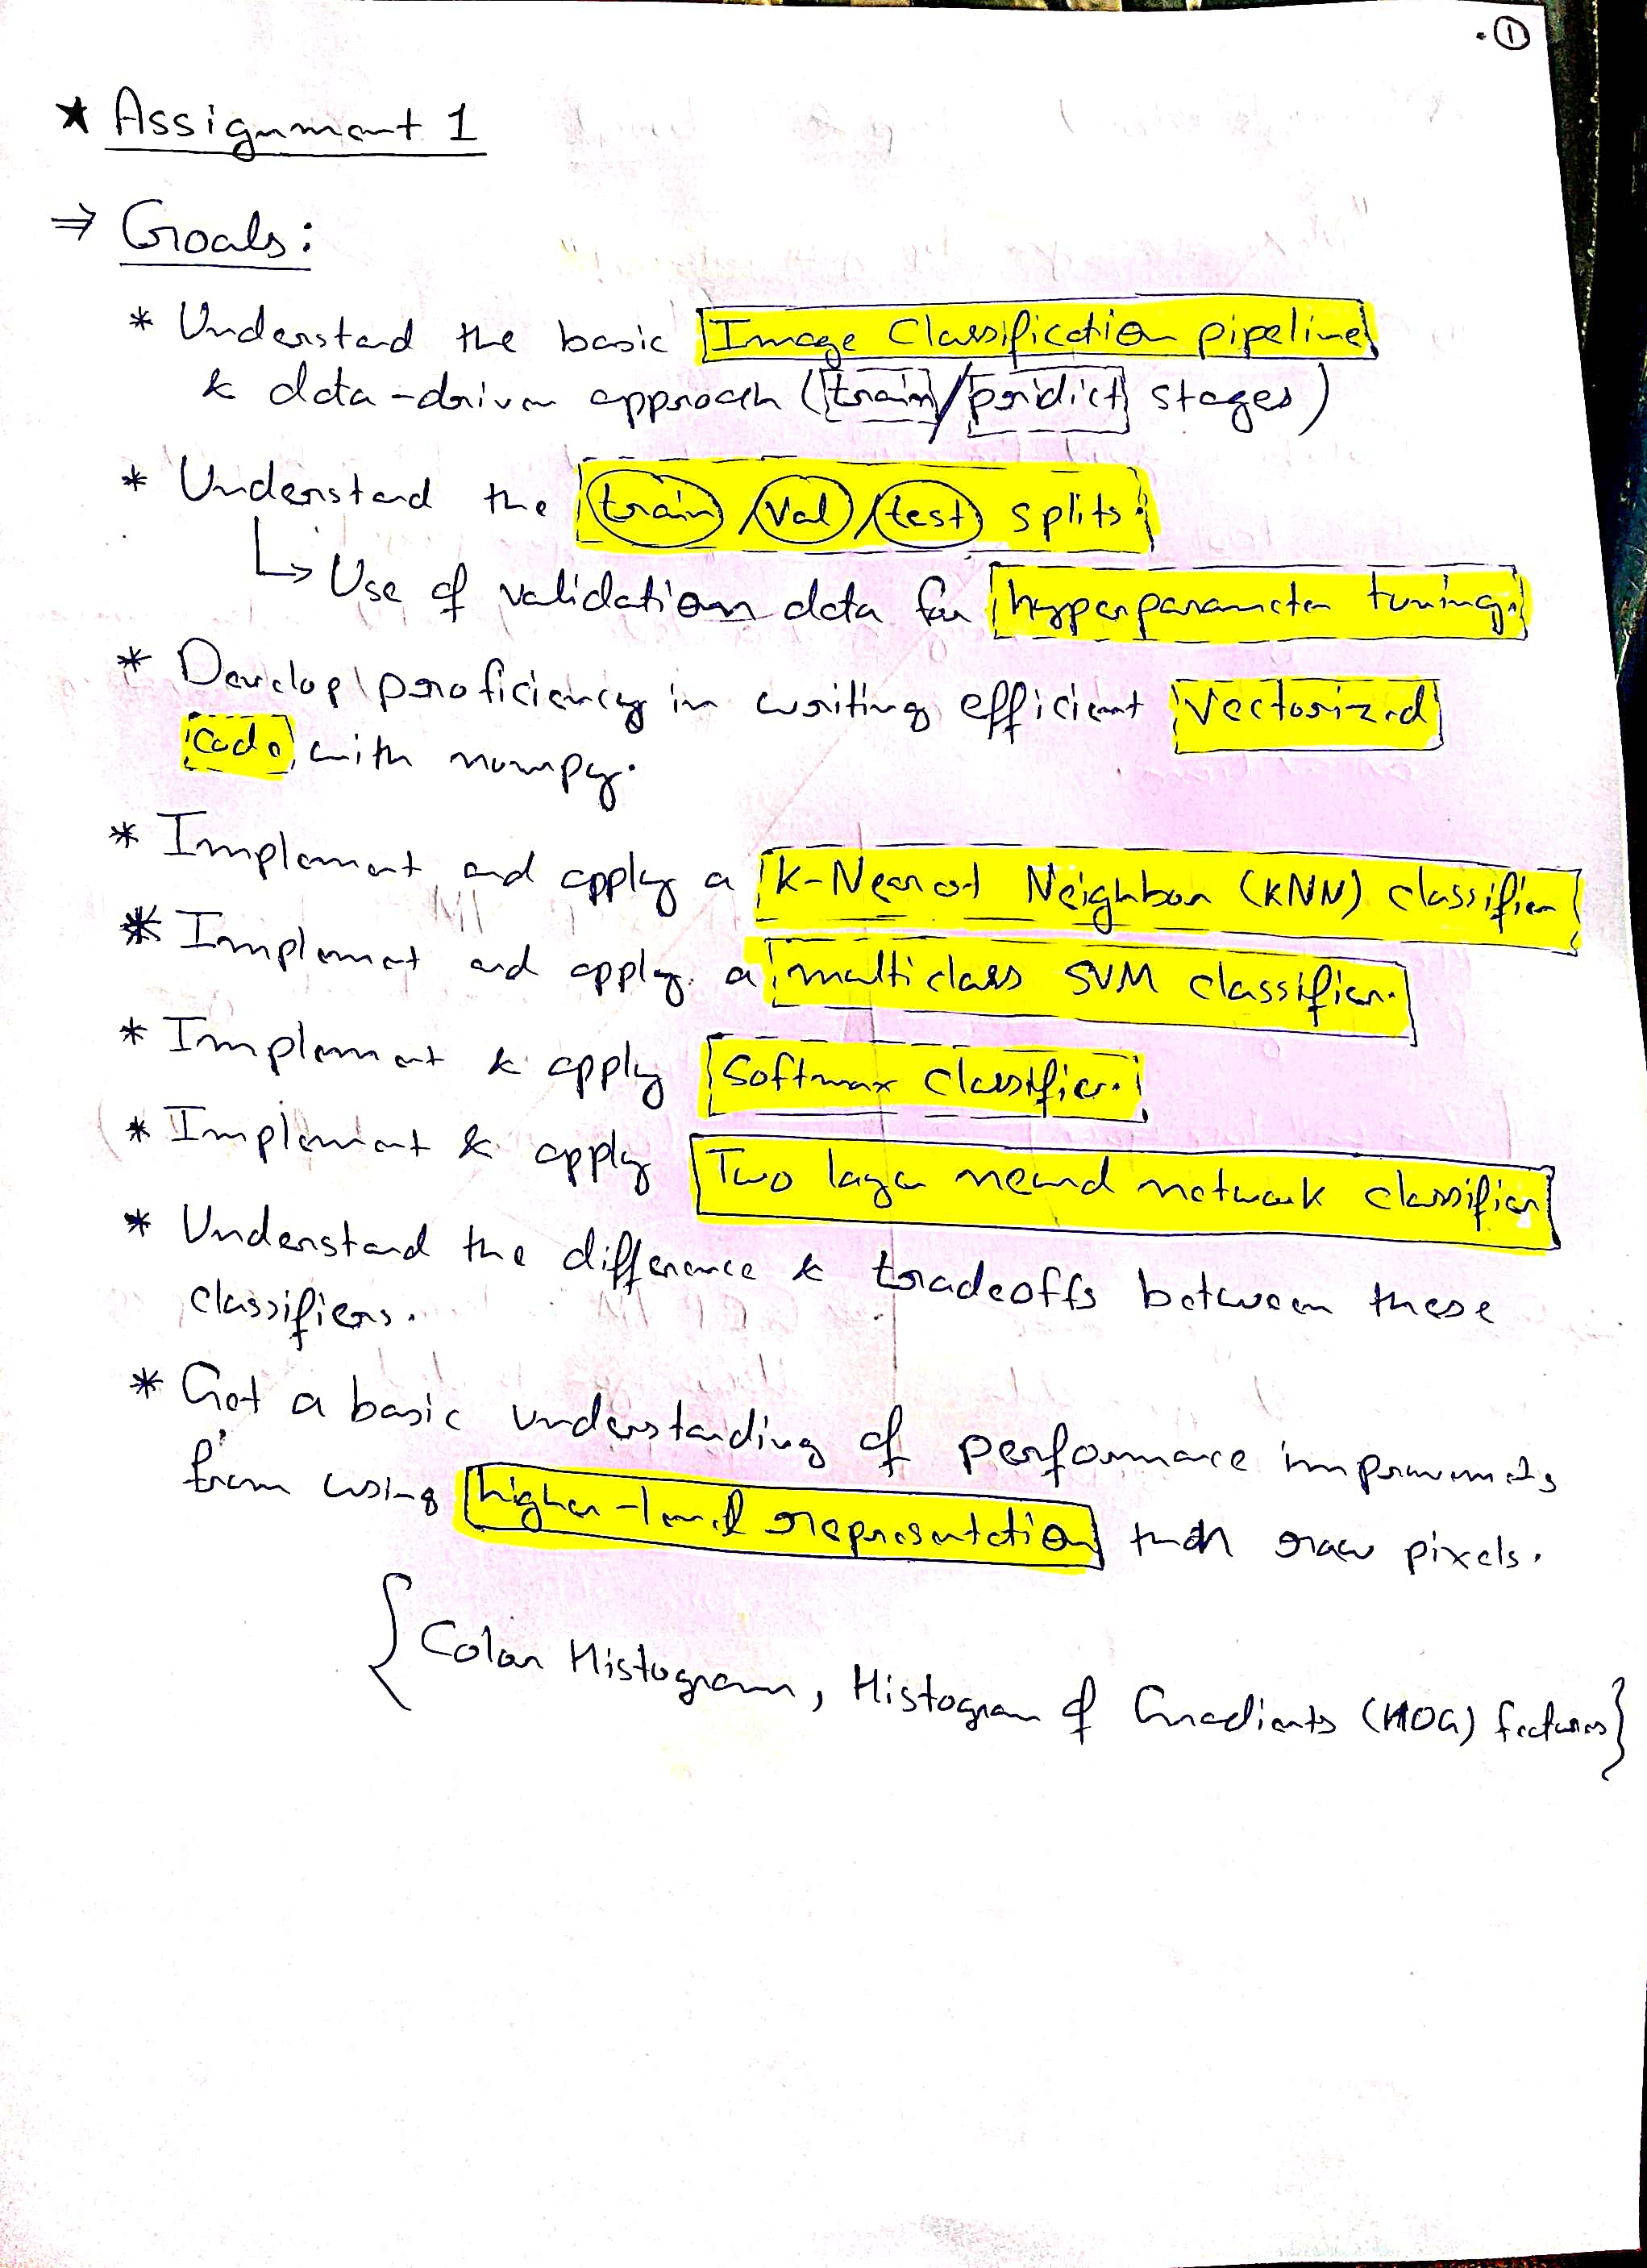 ①
★ Assignment 1
⇒ Goals:
* Understand the basic Image Classification pipeline
& data-driven approach (train/pridict stages)
* Understand the train/val/test splits.
↳ Use of validation data for hyperparameter tuning.
* Develop proficiency in writing efficient vectorized
code with numpy.
* Implement and apply a k-Nearest Neighbor (kNN) classifier
* Implement and apply a multiclass SVM classifier.
* Implement & apply Softmax classifier.
* Implement & apply Two layer neural network classifier
* Understand the difference & tradeoffs between these
classifiers.
* Get a basic understanding of performance improvements
from using higher-level representation than raw pixels.
{Color Histogram, Histogram of Gradients (HOG) features}